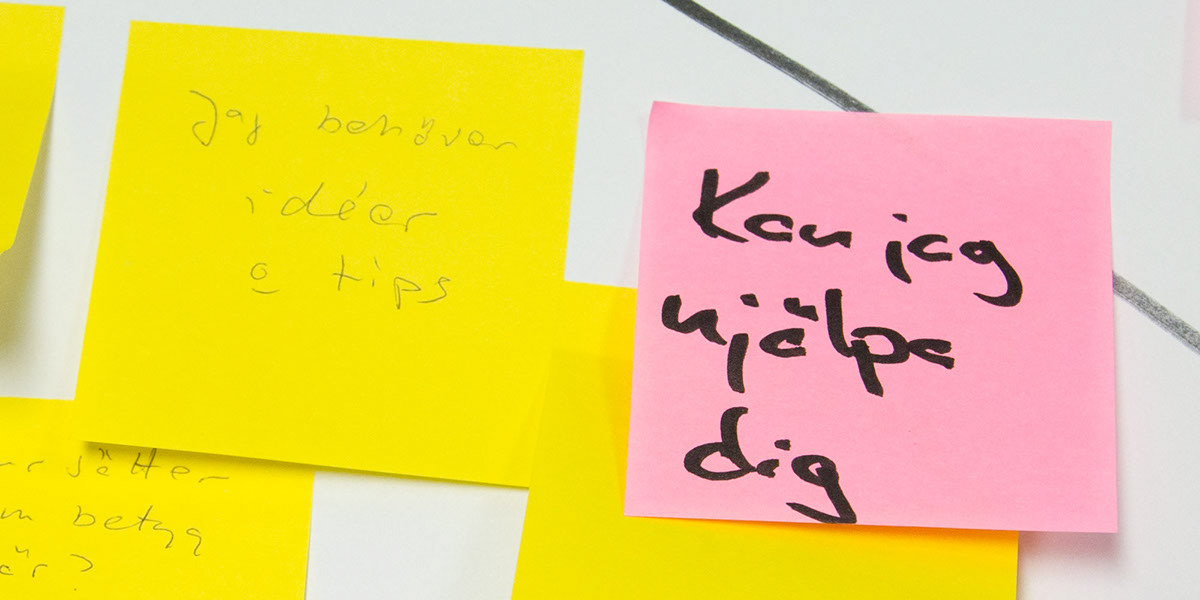 Jag behöver
idéer
o tips
Kan jag
hjälpa
dig
sätter
betyg
är?